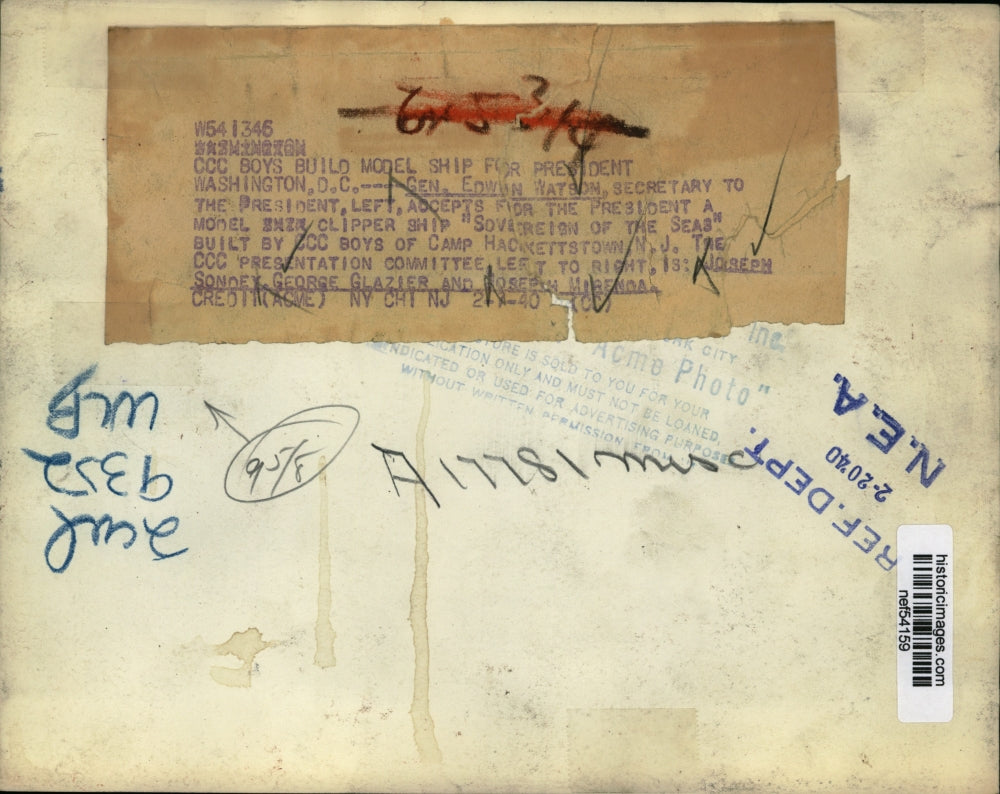 6x5 3/4
W541346
WASHINGTON
CCC BOYS BUILD MODEL SHIP FOR PRESIDENT
WASHINGTON, D.C.--- GEN. EDWIN WATSON, SECRETARY TO
THE PRESIDENT, LEFT, ACCEPTS FOR THE PRESIDENT A
MODEL CLIPPER SHIP "SOVEREIGN OF THE SEAS"
BUILT BY CCC BOYS OF CAMP HACKETTSTOWN, N.J. THE
CCC PRESENTATION COMMITTEE, LEFT TO RIGHT, IS: JOSEPH
GEORGE GLAZIER AND JOSEPH
CREDIT (ACME) NY CHI NJ
YORK CITY
Inc
"Acme Photo"
PICTURE IS SOLD TO YOU FOR YOUR
PUBLICATION ONLY AND MUST NOT BE LOANED,
SYNDICATED OR USED FOR ADVERTISING PURPOSES
WITHOUT WRITTEN PERMISSION FROM
9352
REF. DEPT.
2-20-40
N.E.A.
historicimages.com
nef54159